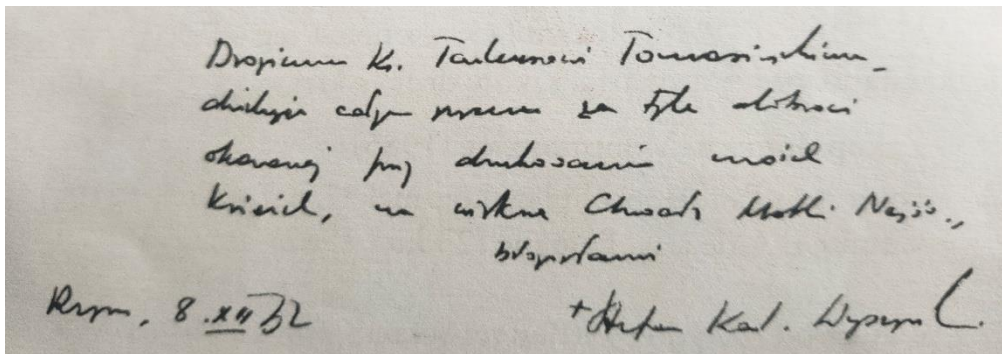 Drogiemu Ks. Tadeuszowi Tomasińskiemu
dziękuję całym sercem za tyle dobroci
okazanej przy drukowaniu moich
Książek, na większą Chwałę Matki Najśw.,
błogosławi
Rzym, 8.XII 72
+ Stefan Kard. Wyszyński